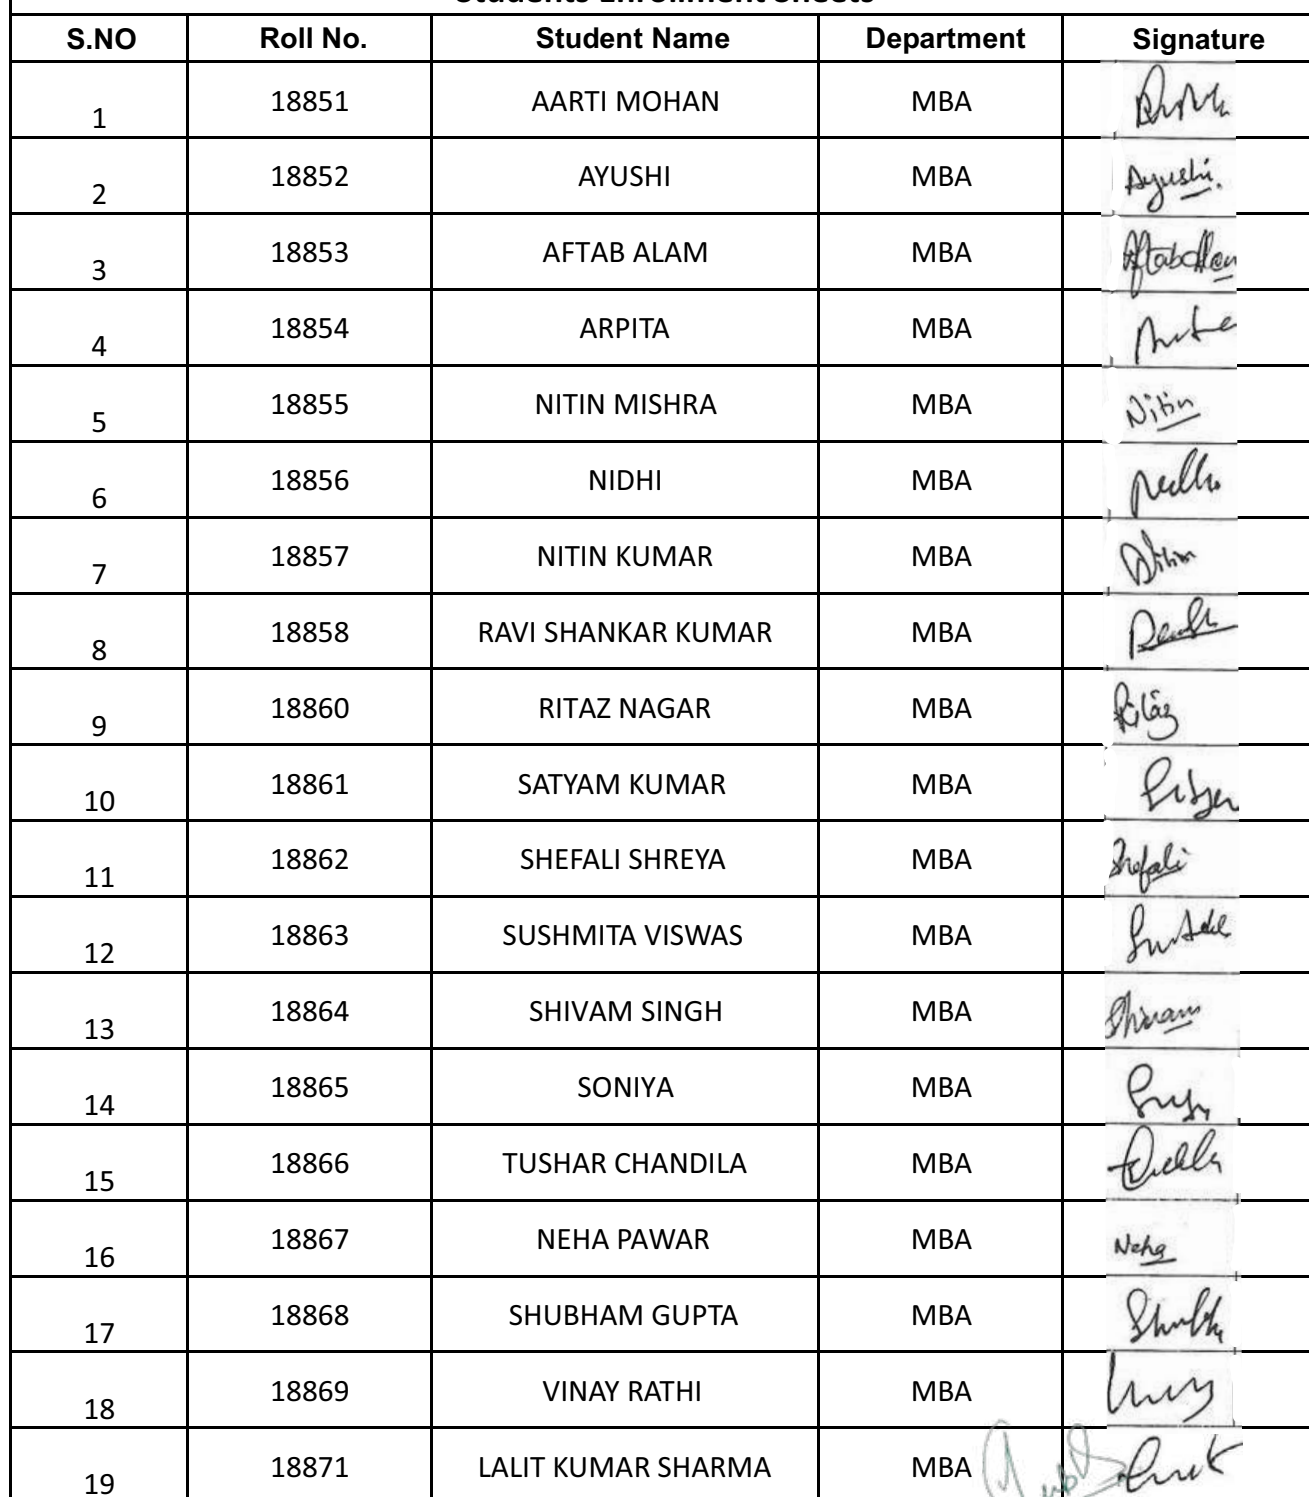 Students Enrollment Sheets
S.NO Roll No. Student Name Department Signature
1 18851 AARTI MOHAN MBA
2 18852 AYUSHI MBA Ayushi.
3 18853 AFTAB ALAM MBA Aftab Alam
4 18854 ARPITA MBA
5 18855 NITIN MISHRA MBA Nitin
6 18856 NIDHI MBA
7 18857 NITIN KUMAR MBA Nitin
8 18858 RAVI SHANKAR KUMAR MBA
9 18860 RITAZ NAGAR MBA Ritaz
10 18861 SATYAM KUMAR MBA
11 18862 SHEFALI SHREYA MBA Shefali
12 18863 SUSHMITA VISWAS MBA
13 18864 SHIVAM SINGH MBA Shivam
14 18865 SONIYA MBA
15 18866 TUSHAR CHANDILA MBA
16 18867 NEHA PAWAR MBA Neha
17 18868 SHUBHAM GUPTA MBA
18 18869 VINAY RATHI MBA
19 18871 LALIT KUMAR SHARMA MBA